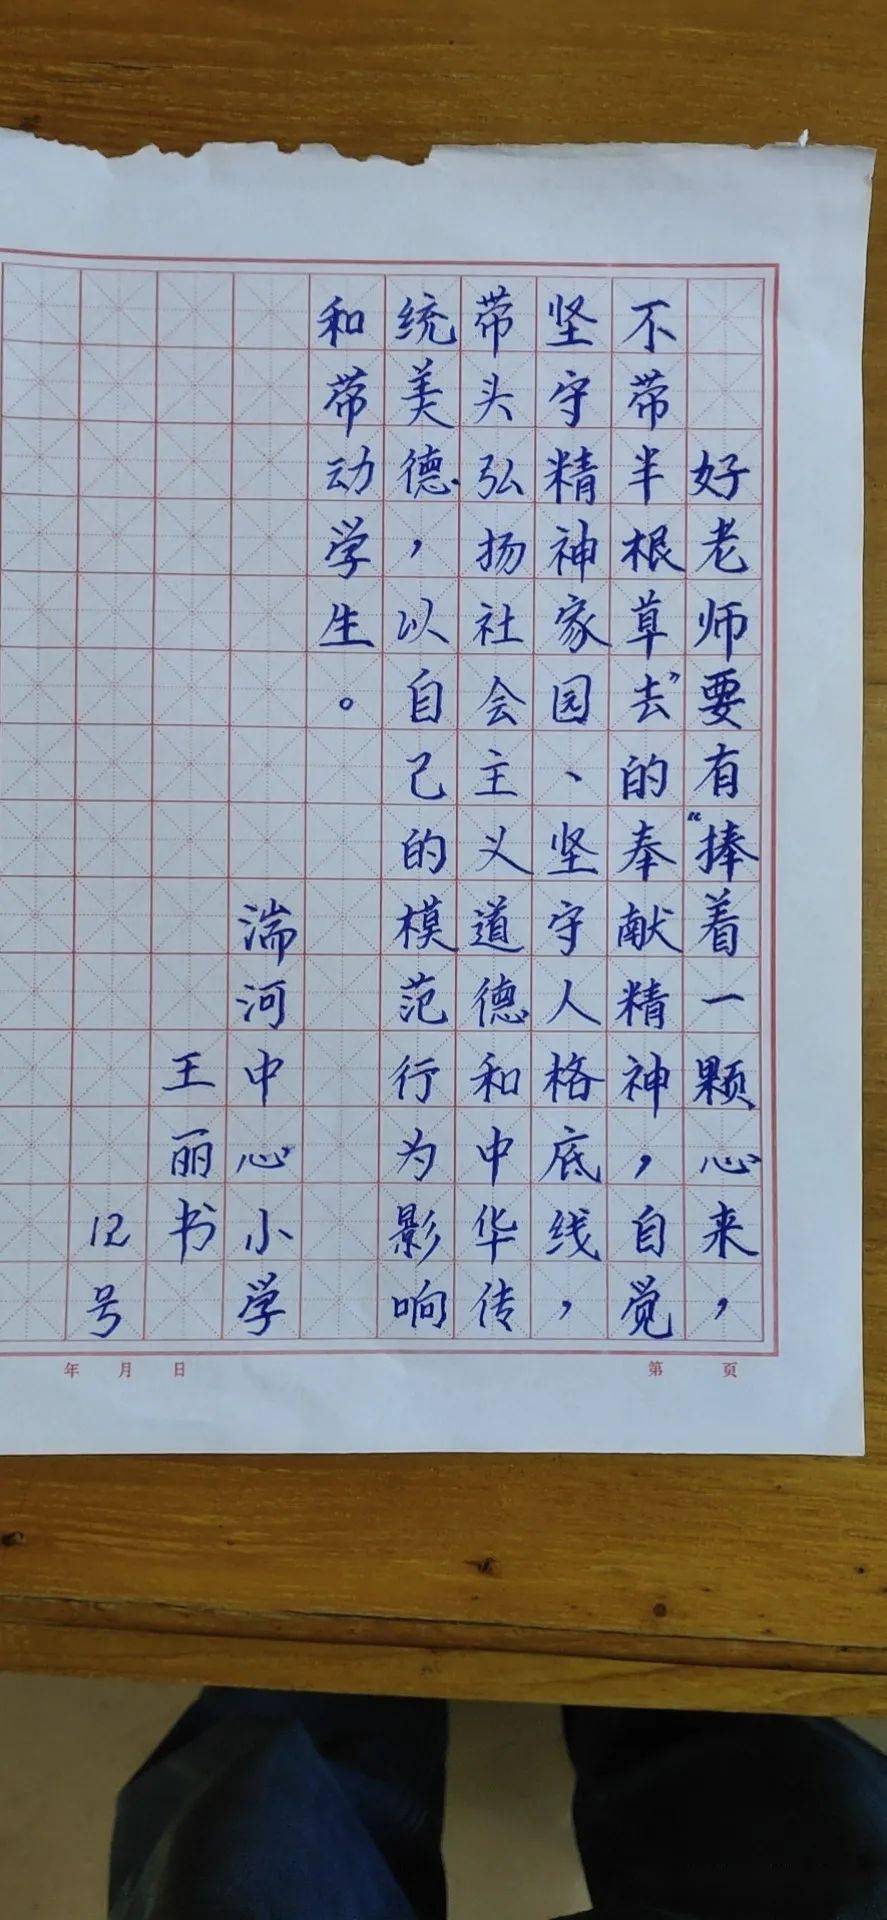 好老师要有“捧着一颗心来，
不带半根草去”的奉献精神，自觉
坚守精神家园、坚守人格底线，
带头弘扬社会主义道德和中华传
统美德，以自己的模范行为影响
和带动学生。
湍河中心小学
王丽书
12号
第 页
年 月 日